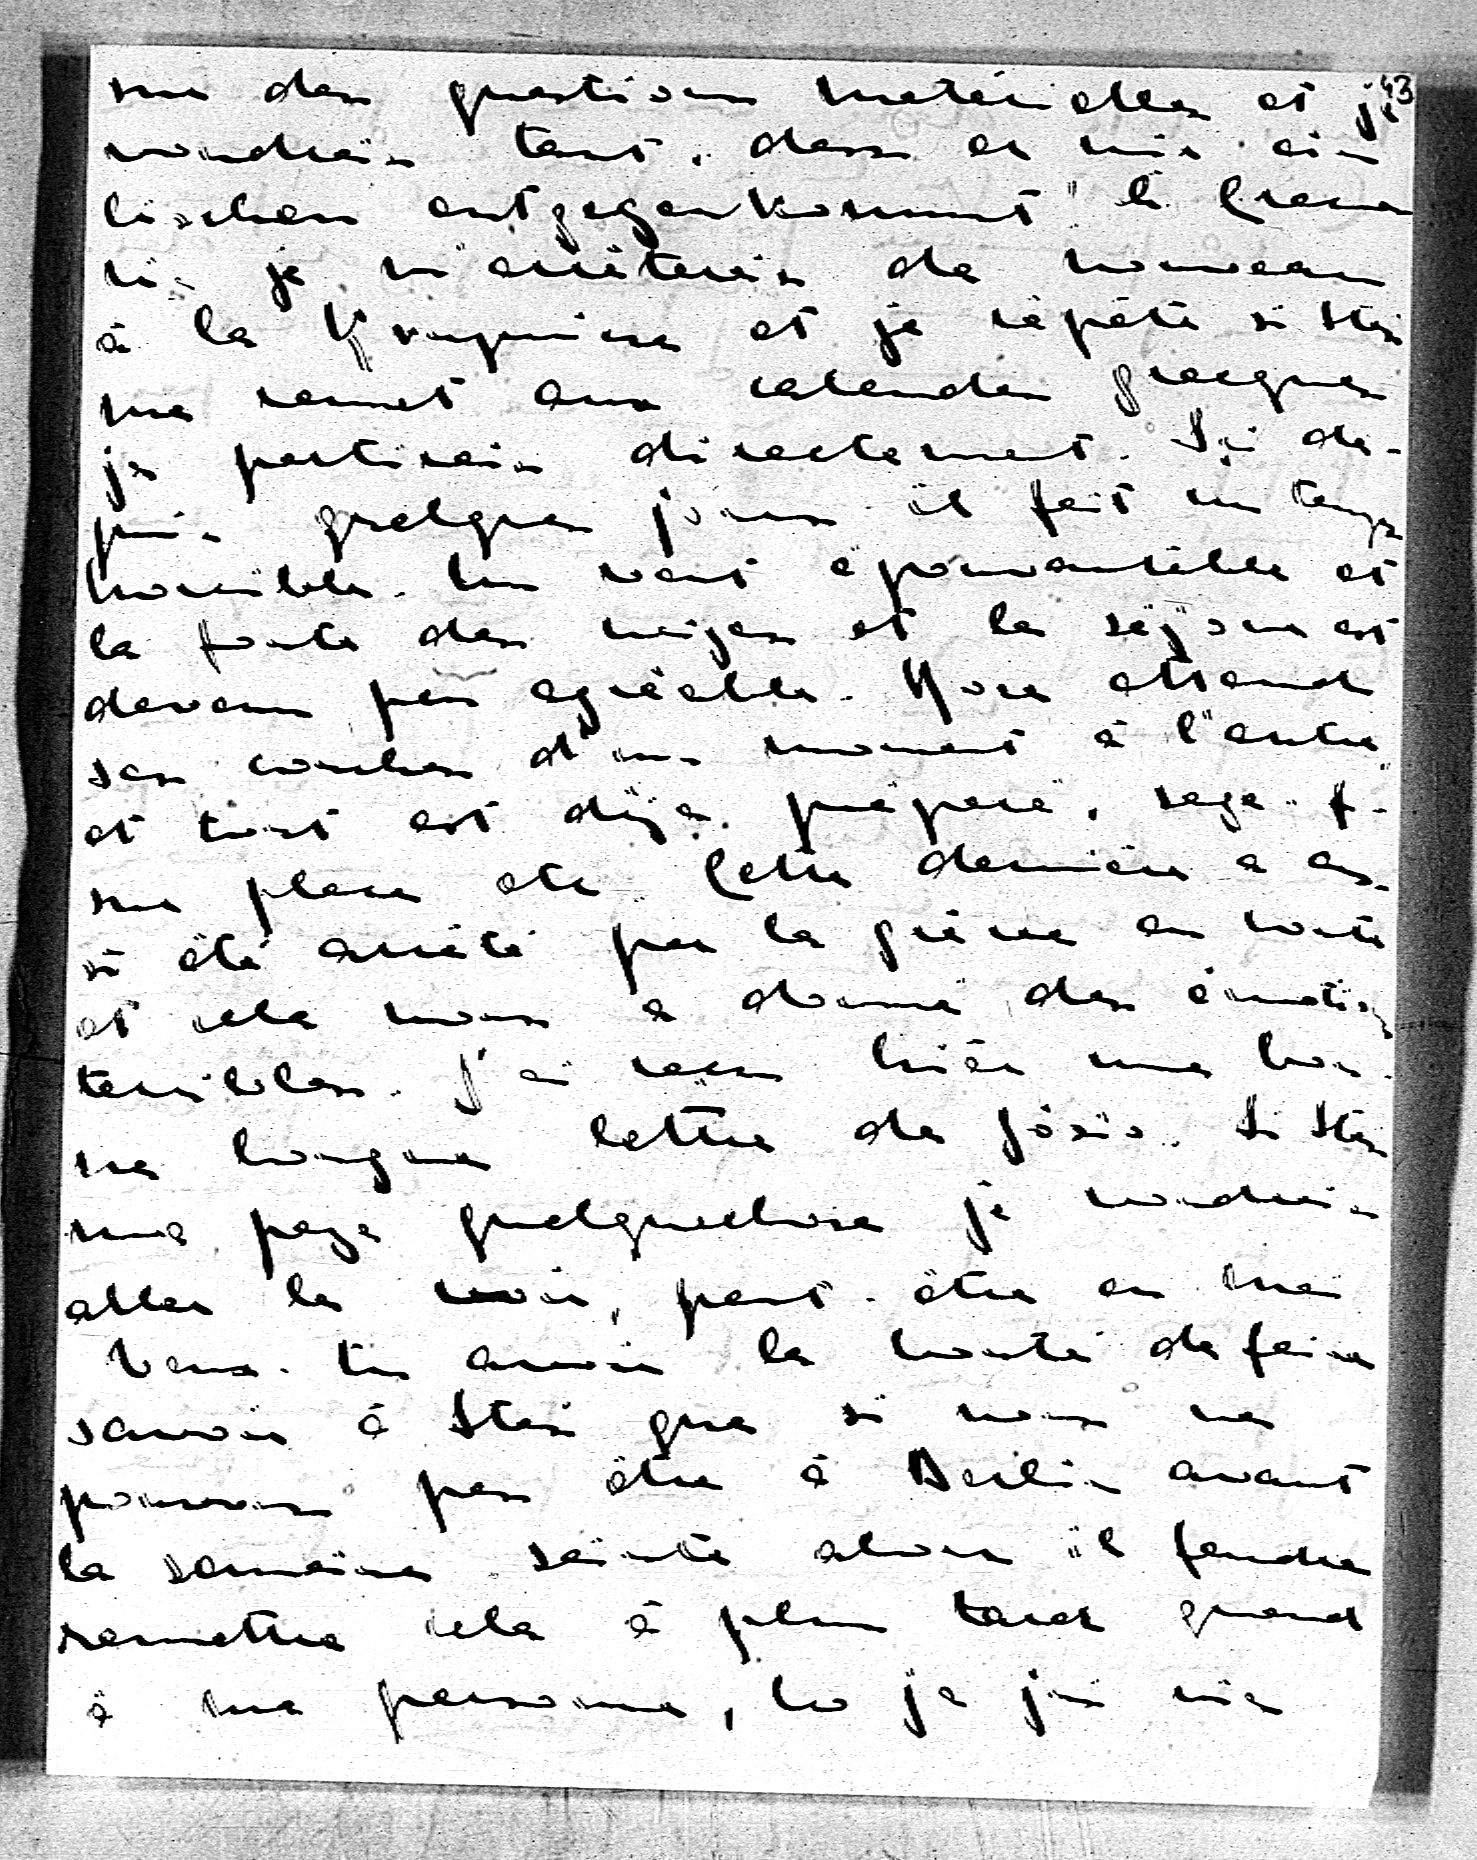 43
sur des questions matérielles et je
voudrais tant „dass er mir ein
bischen entgegenkommt" à Craco
vie je m'arrêterais de nouveau
à la Krupnicza et je répète si Stas
me remet aux calendes grecques
je partirais directement. Ici de-
puis quelques jours il fait un temps
horrible. Un vent épouvantable et
la fonte des neiges et le séjour est
devenu peu agréable. Rose attend
ses couches d'un moment à l'autre
et tout est déjà préparé, sage-f.
sur place etc Cette dernière a aus-
si été arrêté par la grève en route
et cela nous a donné des émotions
terribles. J'ai reçu hier une bon-
ne longue lettre de Józio. Si Stas
me paye quelquechose je voudrais
aller le voir, peut-être en mai
Veux-tu avoir la bonté de faire
savoir à Stas que si nous ne
pouvons pas être à Berlin avant
la semaine sainte alors il faudra
remettre cela à plus tard quand
à ma personne, bo ja już nie